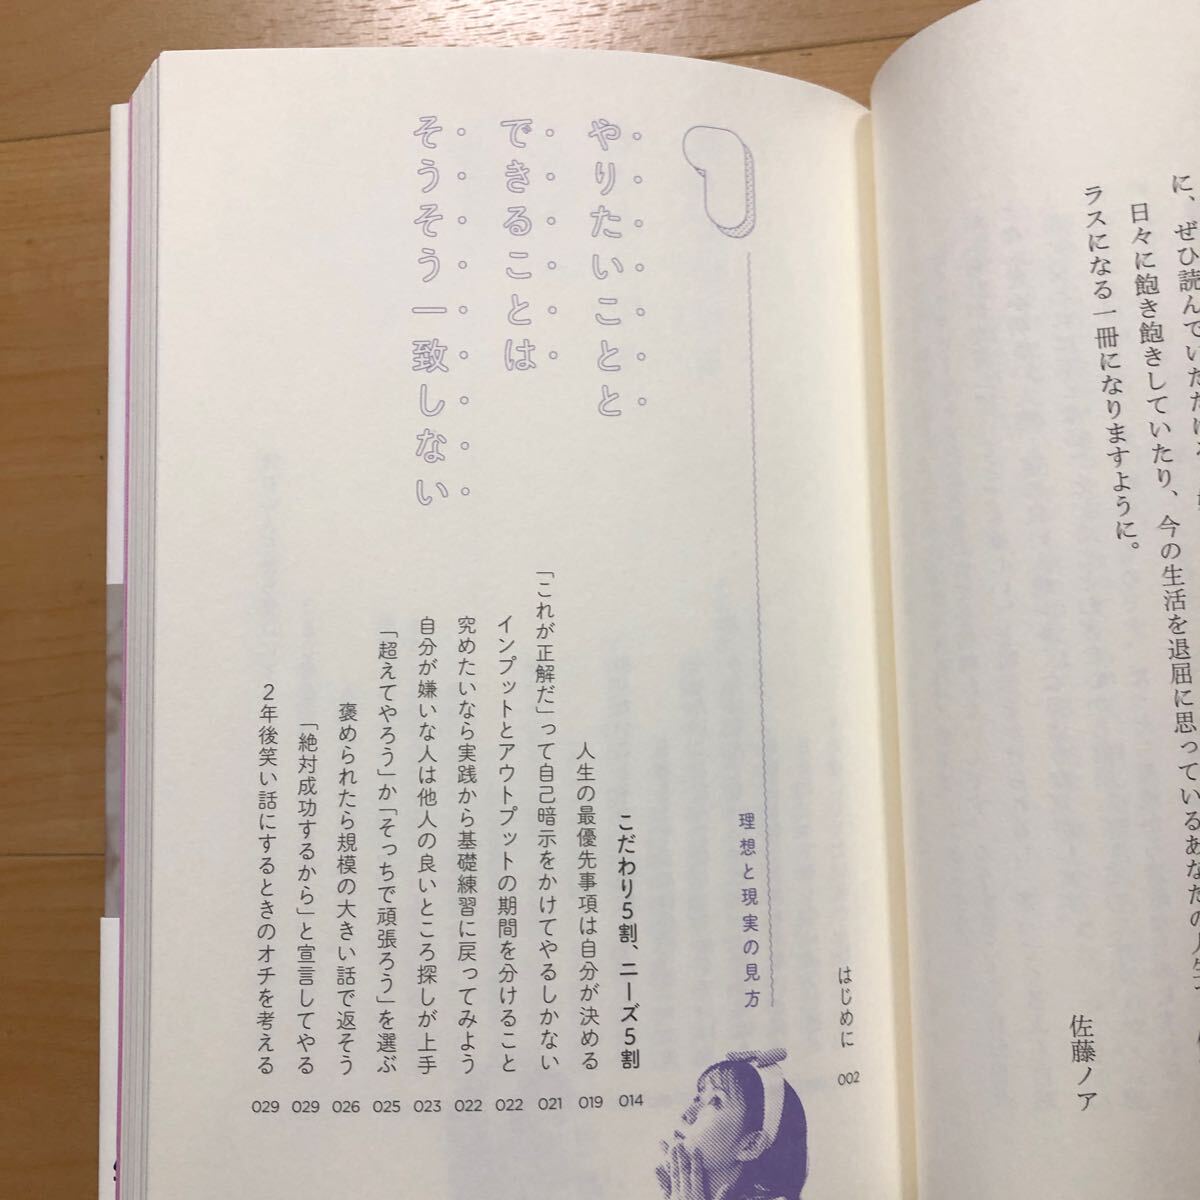 に、ぜひ読んでいただけ
日々に飽き飽きしていたり、今の生活を退屈に思っているあなたの人生
ラスになる一冊になりますように。
佐藤ノア
はじめに 002
1
理想と現実の見方
やりたいことと
できることは
そうそう一致しない
こだわり5割、ニーズ5割 014
人生の最優先事項は自分が決める 019
「これが正解だ」って自己暗示をかけてやるしかない 021
インプットとアウトプットの期間を分けること 022
究めたいなら実践から基礎練習に戻ってみよう 022
自分が嫌いな人は他人の良いところ探しが上手 023
「超えてやろう」か「そっちで頑張ろう」を選ぶ 025
褒められたら規模の大きい話で返そう 026
「絶対成功するから」と宣言してやる 029
2年後笑い話にするときのオチを考える 029